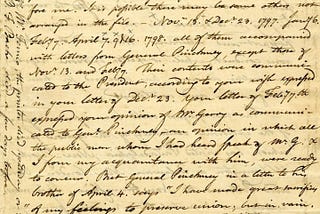 for me. It is possible there may be some others not
arranged in the file — Nov. 13. & Dec. 23. 1797. Jan. 6.
Feb. 7 — April 7. 9 & 16. 1798. all of them accompanied
with letters from General Pinckney, except those of
Nov. 13. and Feb. 7. Their contents were communi-
cated to the President, according to your wish expressed
in your letter of Dec. 23. Your letter of Feb. 7th
expressed your opinion of Mr. Gerry as communi-
cated to Genl. Pinckney; an opinion in which all
the public men whom I had heard speak of Mr. G. &
I from my acquaintance with him, were ready
to concur. But General Pinckney in a letter to his
brother of April 4. says "I have made great sacrifices
of my feelings to preserve union; but in vain.